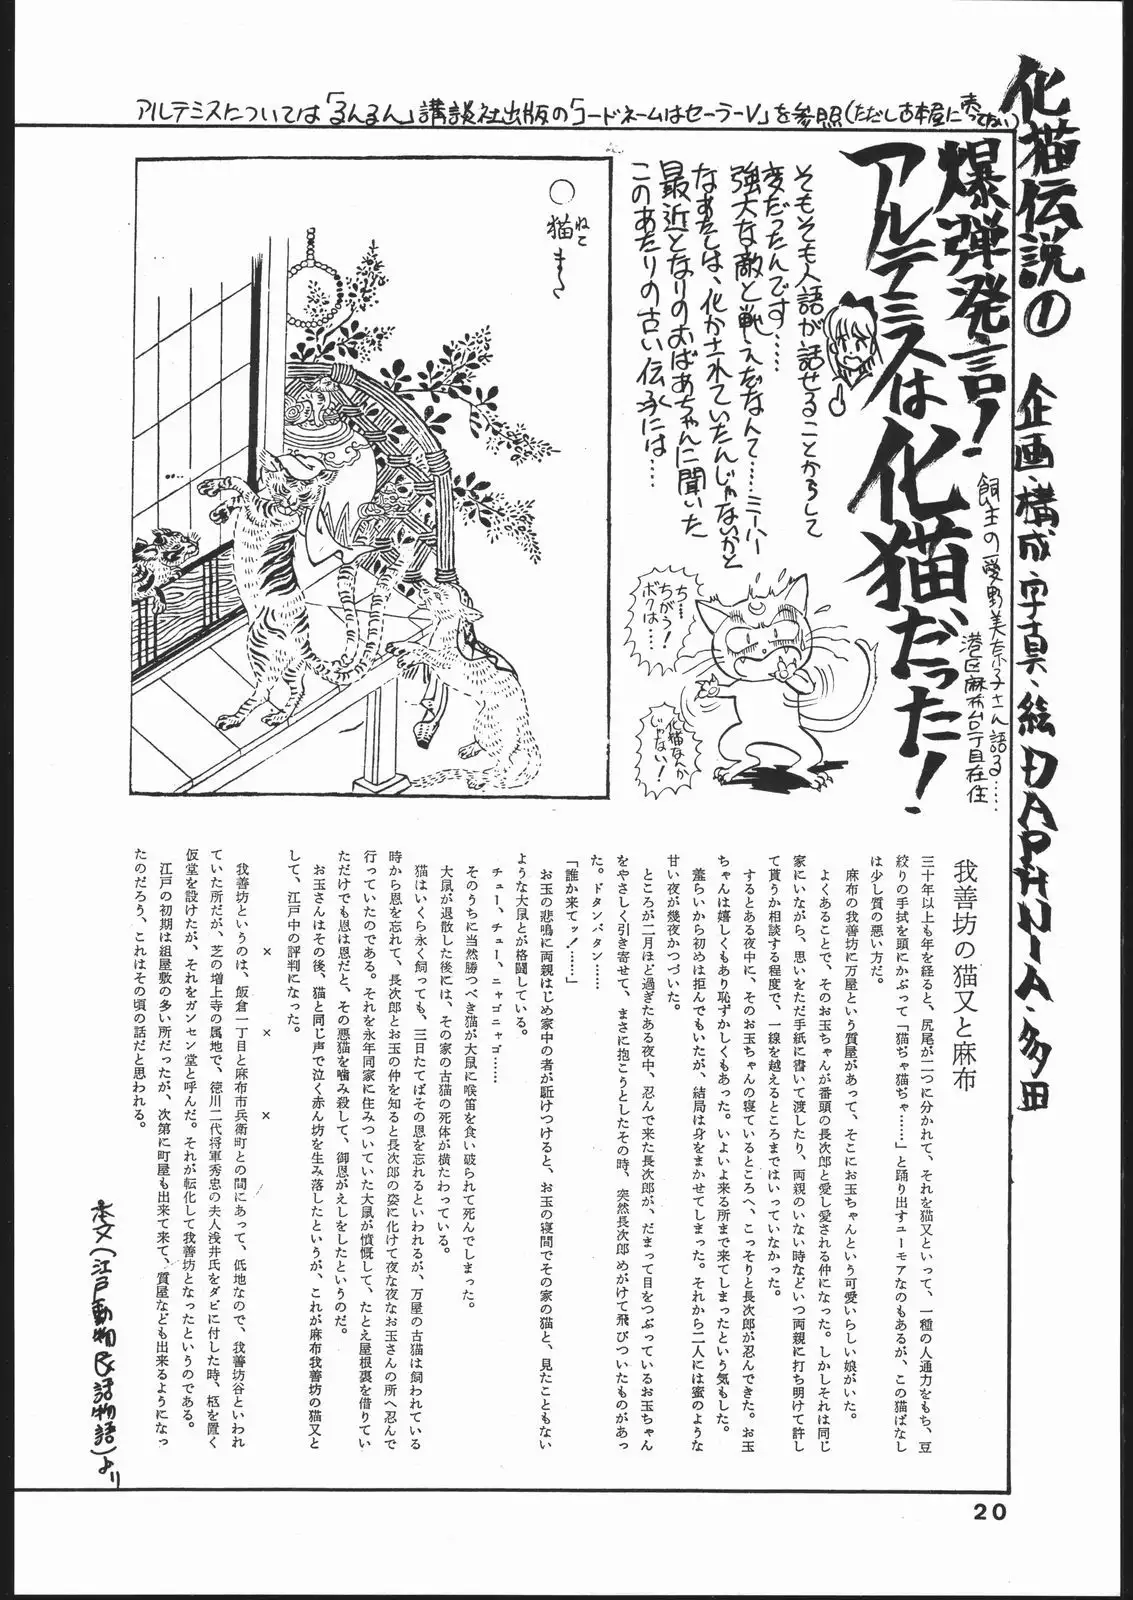 化猫伝説の① 企画・構成・写真・絵 DAPHNIA・多田
アルテミスについては「るんるん」講談社出版の「コードネームはセーラーV」を参照(ただし古本屋に売ってない)
爆弾発言!
アルテミスは化猫だった!
飼主の愛野美奈子さん語る……
港区麻布台丁目在住
そもそも人語が話せることからして
変だったんです……
強大な敵と戦えだなんて……ミーハー
なあたしは、化かされていたんじゃないかと
最近となりのおばあちゃんに聞いた
このあたりの古い伝承には……
ち…
ちがう!
ボクは…
化猫なんか
じゃない!
○猫また
ねこ
我善坊の猫又と麻布
三十年以上も年を経ると、尻尾が二つに分かれて、それを猫又といって、一種の人通力をもち、豆
絞りの手拭を頭にかぶって「猫ぢゃ猫ぢゃ……」と踊り出すユーモアなのもあるが、この猫ばなし
は少し質の悪い方だ。
麻布の我善坊に万屋という質屋があって、そこにお玉ちゃんという可愛いらしい娘がいた。
よくあることで、そのお玉ちゃんが番頭の長次郎と愛し愛される仲になった。しかしそれは同じ
家にいながら、思いをただ手紙に書いて渡したり、両親のいない時などいつ両親に打ち明けて許し
て貰うか相談する程度で、一線を越えるところまではいっていなかった。
するとある夜中に、そのお玉ちゃんの寝ているところへ、こっそりと長次郎が忍んできた。お玉
ちゃんは嬉しくもあり恥ずかしくもあった。いよいよ来る所まで来てしまったという気もした。
羞らいから初めは拒んでもいたが、結局は身をまかせてしまった。それから二人には蜜のような
甘い夜が幾夜かつづいた。
ところが二月ほど過ぎたある夜中、忍んで来た長次郎が、だまって目をつぶっているお玉ちゃん
をやさしく引き寄せて、まさに抱こうとしたその時、突然長次郎めがけて飛びついたものがあっ
た。ドタンバタン……
「誰か来てッ!……」
お玉の悲鳴に両親はじめ家中の者が駈けつけると、お玉の寝間でその家の猫と、見たこともない
ような大鼠とが格闘している。
チュー、チュー、ニャゴニャゴ……
そのうちに当然勝つべき猫が大鼠に喉笛を食い破られて死んでしまった。
大鼠が退散した後には、その家の古猫の死体が横たわっている。
猫はいくら永く飼っても、三日たてばその恩を忘れるといわれるが、万屋の古猫は飼われている
時から恩を忘れて、長次郎とお玉の仲を知ると長次郎の姿に化けて夜な夜なお玉さんの所へ忍んで
行っていたのである。それを永年同家に住みついていた大鼠が憤慨して、たとえ屋根裏を借りてい
ただけでも恩は恩だと、その悪猫を噛み殺して、御恩がえしをしたというのだ。
お玉さんはその後、猫と同じ声で泣く赤ん坊を生み落したというが、これが麻布我善坊の猫又と
して、江戸中の評判になった。
× × ×
我善坊というのは、飯倉一丁目と麻布市兵衛町との間にあって、低地なので、我善坊谷といわれ
ていた所だが、芝の増上寺の属地で、徳川二代将軍秀忠の夫人浅井氏をダビに付した時、柩を置く
仮堂を設けたが、それをガンセン堂と呼んだ。それが転化して我善坊となったというのである。
江戸の初期は組屋敷の多い所だったが、次第に町屋も出来て来て、質屋なども出来るようになっ
たのだろう、これはその頃の話だと思われる。
本文(江戸動物民話物語)より
20